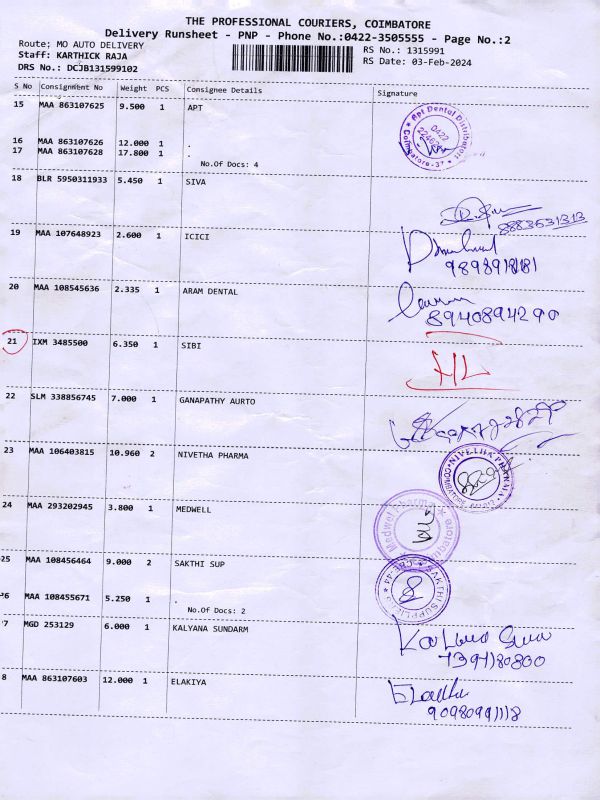 THE PROFESSIONAL COURIERS, COIMBATORE
Delivery Runsheet - PNP - Phone No.:0422-3505555 - Page No.:2
Route; MO AUTO DELIVERY
Staff: KARTHICK RAJA
DRS No.: DCJB131599102
RS No.: 1315991
RS Date: 03-Feb-2024
S No Consignment No Weight PCS Consignee Details Signature
15 MAA 863107625 9.500 1 APT
Apt Dental Distributors
0422
Coimbatore-37
16 MAA 863107626 12.000 1 .
17 MAA 863107628 17.800 1 .
No.Of Docs: 4
18 BLR 5950311933 5.450 1 SIVA
8883631313
19 MAA 107648923 2.600 1 ICICI
20 MAA 108545636 2.335 1 ARAM DENTAL
8940894290
21 IXM 3485500 6.350 1 SIBI
HL
22 SLM 338856745 7.000 1 GANAPATHY AURTO
23 MAA 106403815 10.960 2 NIVETHA PHARMA
NIVETHA PHARMA
24 MAA 293202945 3.800 1 MEDWELL
Medwel Pharma
25 MAA 108456464 9.000 2 SAKTHI SUP
CBE-44
26 MAA 108455671 5.250 1 .
No.Of Docs: 2
7 MGD 253129 6.000 1 KALYANA SUNDARM
7397180800
8 MAA 863107603 12.000 1 ELAKIYA